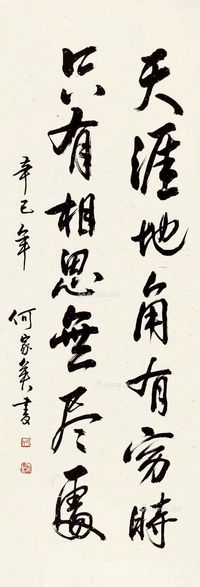 天涯地角有穷時
只有相思無尽處
辛巳年 何家英書